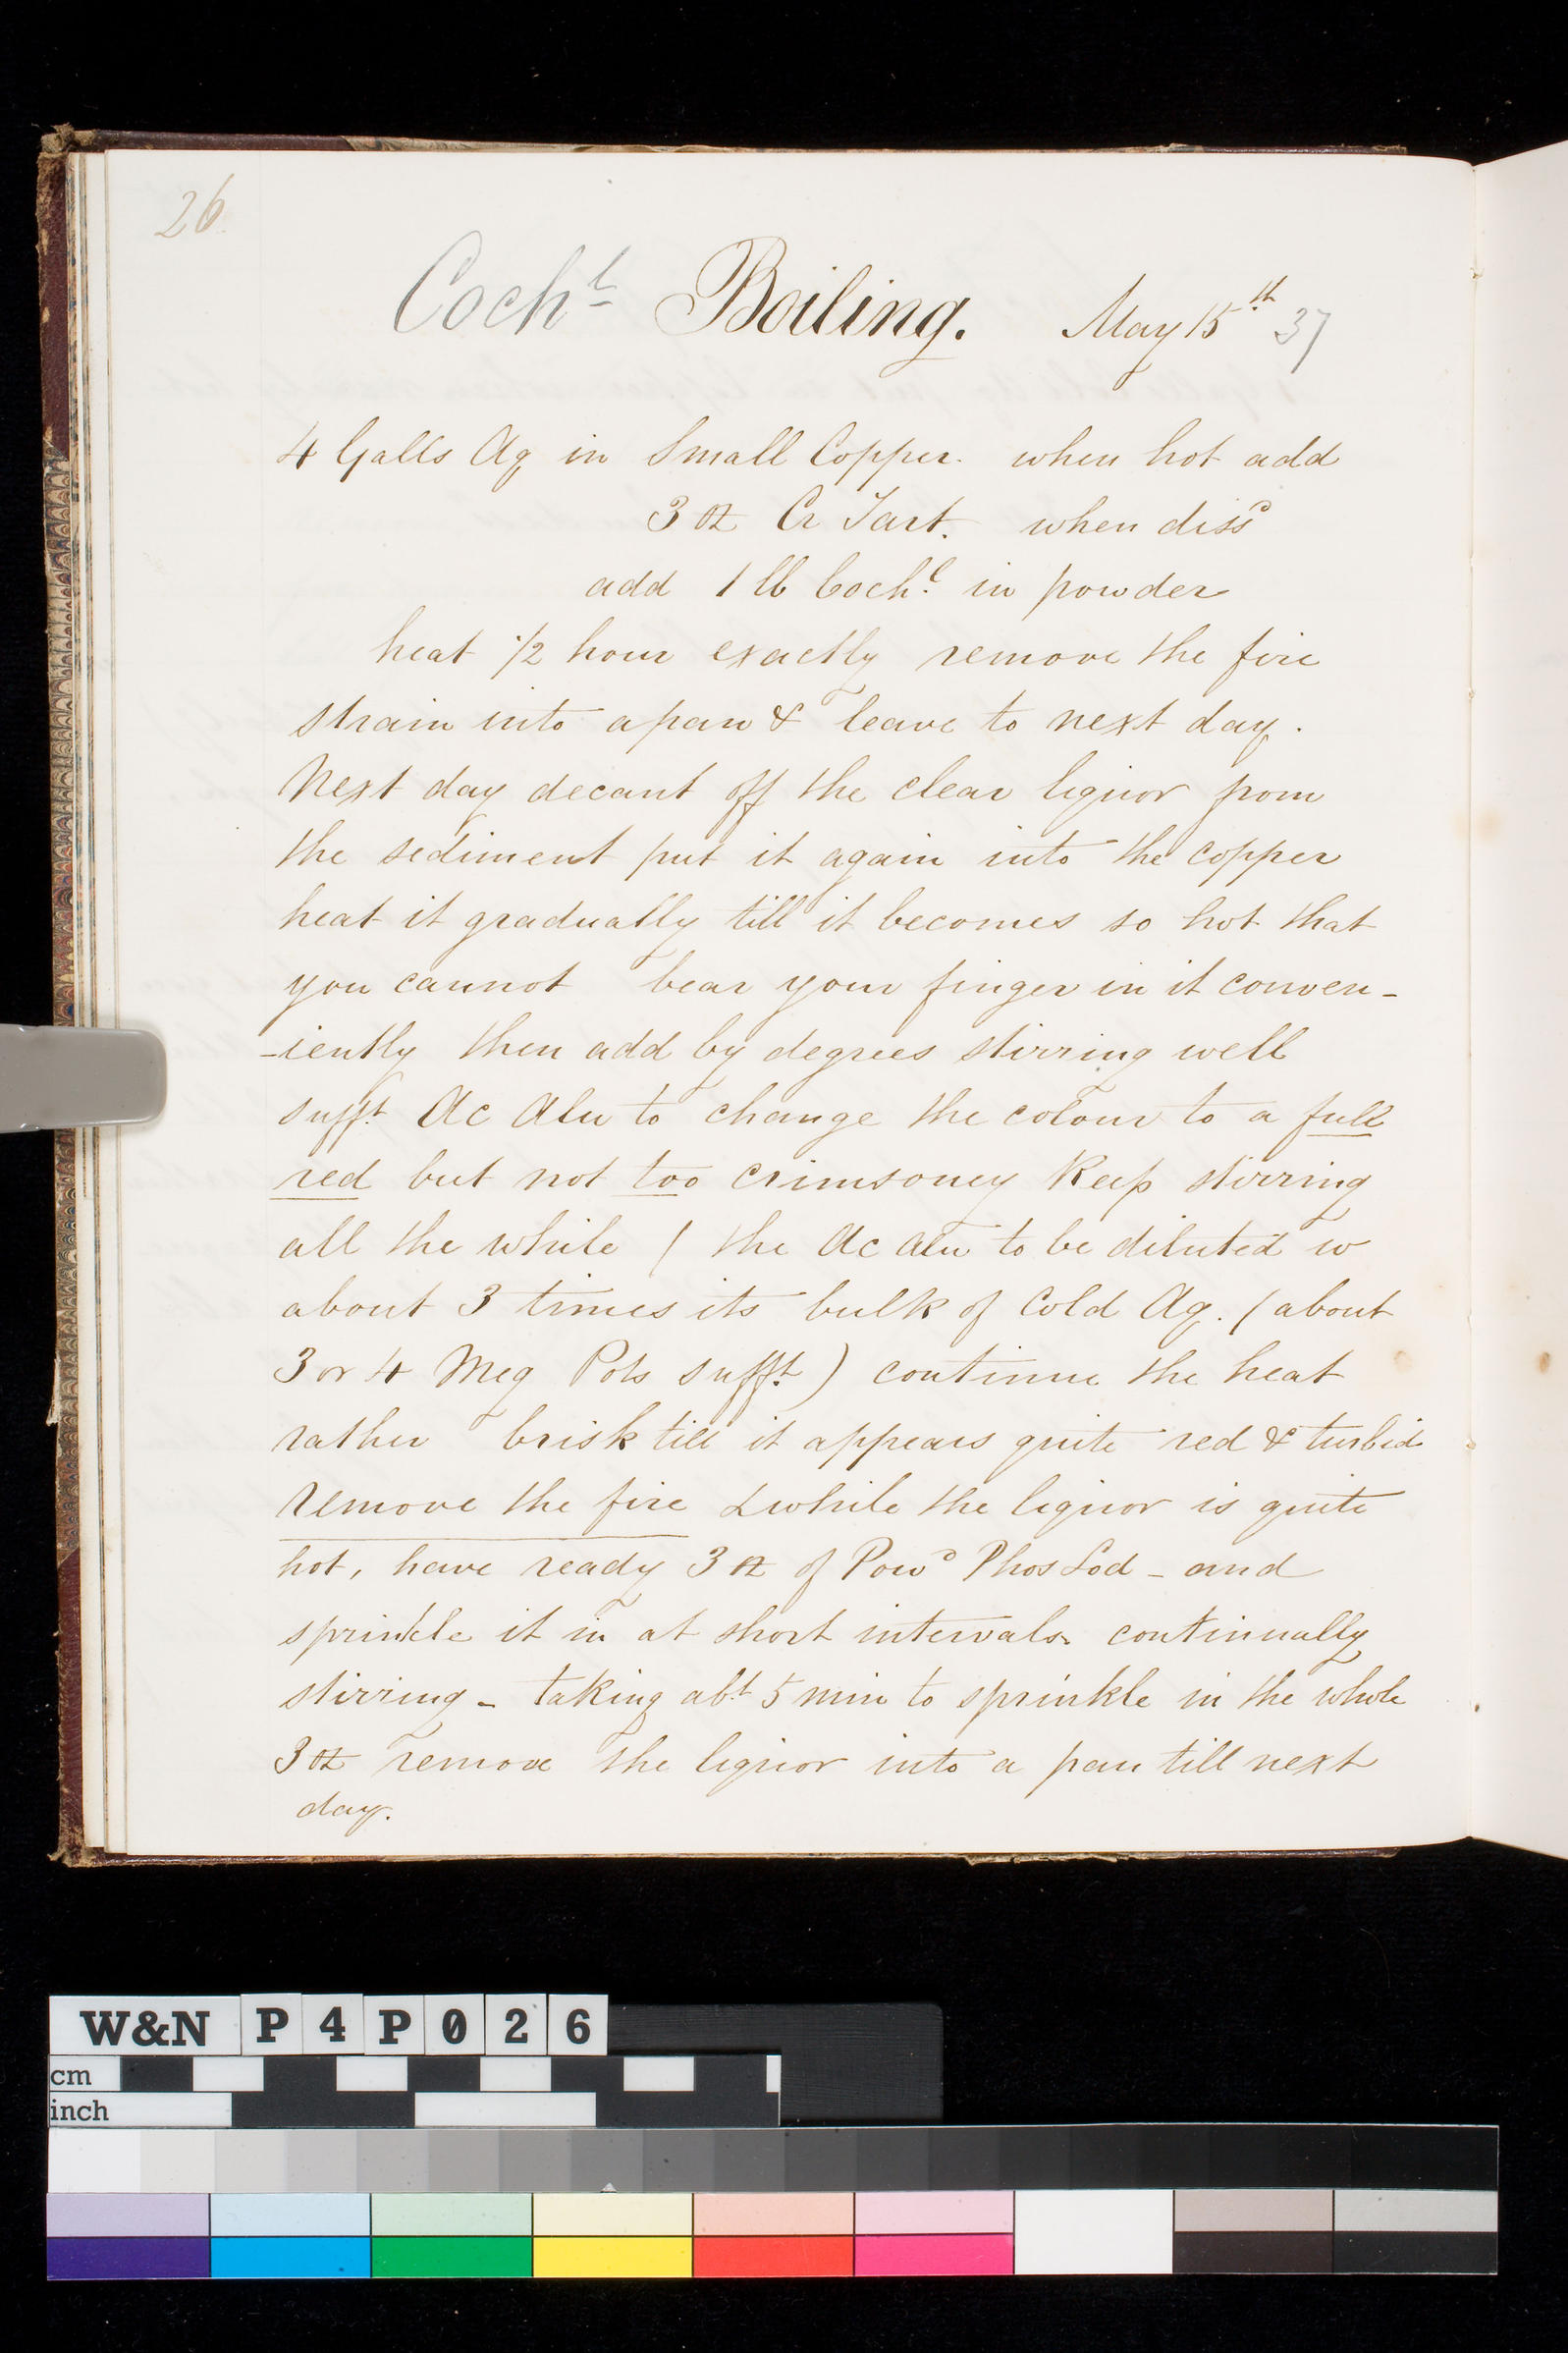 26
Coch^l Boiling. May 15^th 37
4 Galls Aq in Small Copper. when hot add
3 oz Cr Tart. when diss^d
add 1 lb Coch^l in powder
heat 1/2 hour exactly remove the fire
strain into a pan & leave to next day.
Next day decant off the clear liquor from
the sediment put it again into the copper
heat it gradually till it becomes so hot that
you cannot bear your finger in it conven-
-iently then add by degrees stirring well
suff^t Ac Alu to change the colour to a full
red but not too crimsoney Keep stirring
all the while ( the Ac Alu to be diluted w
about 3 times its bulk of Cold Aq. (about
3 or 4 Meg Pots suff^t ) continue the heat
rather brisk till it appears quite red & turbid
remove the fire & while the liquor is quite
hot, have ready 3 oz of Pow^d Phos Sod - and
sprinkle it in at short intervals continually
stirring - taking ab^t 5 min to sprinkle in the whole
3 oz remove the liquor into a pan till next
day.
W&N P4P026
cm
inch